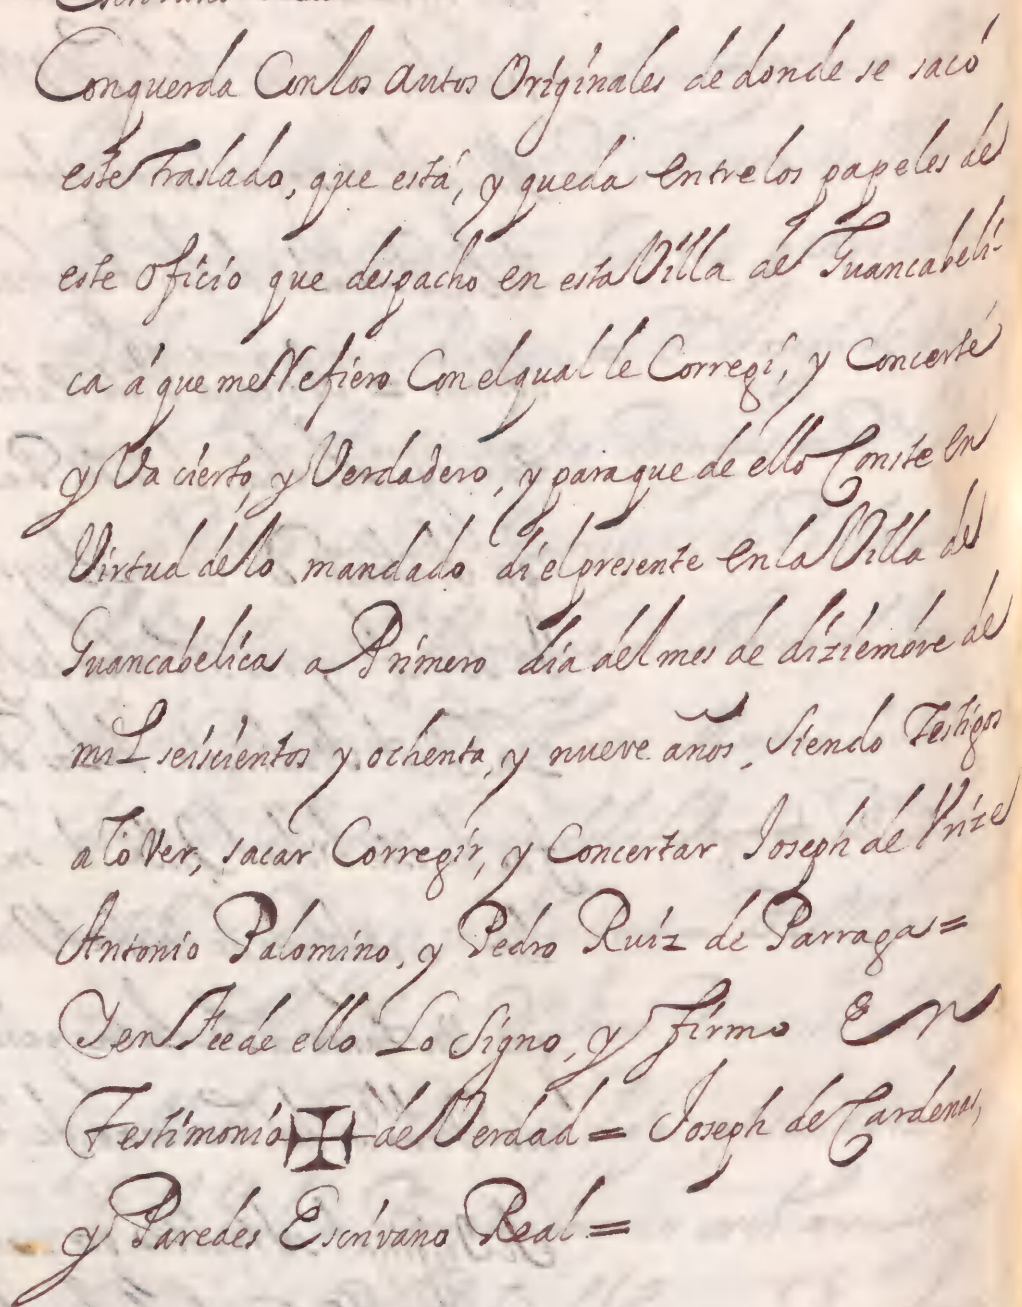 Conquerda Con los autos Originales de donde se sacó
este traslado, que está, y queda entre los papeles de
este oficio que despacho en esta Villa de Guancabeli-
ca á que me Refiero Con el qual le Corregí, y Concerté
y Va cierto, y Verdadero, y para que de ello Conste en
Virtud de lo mandado di el presente en la Villa de
Guancabelica a Primero dia del mes de diziembre de
mil seiscientos y ochenta, y nueve años, Siendo Testigos
a lo Ver, sacar Corregir, y Concertar Joseph de
Antonio Palomino, y Pedro Ruiz de Parraga =
Y en Fee de ello Lo Signo, y firmo En
Testimonio de Verdad = Joseph de Cardenas,
y Paredes Escrivano Real =